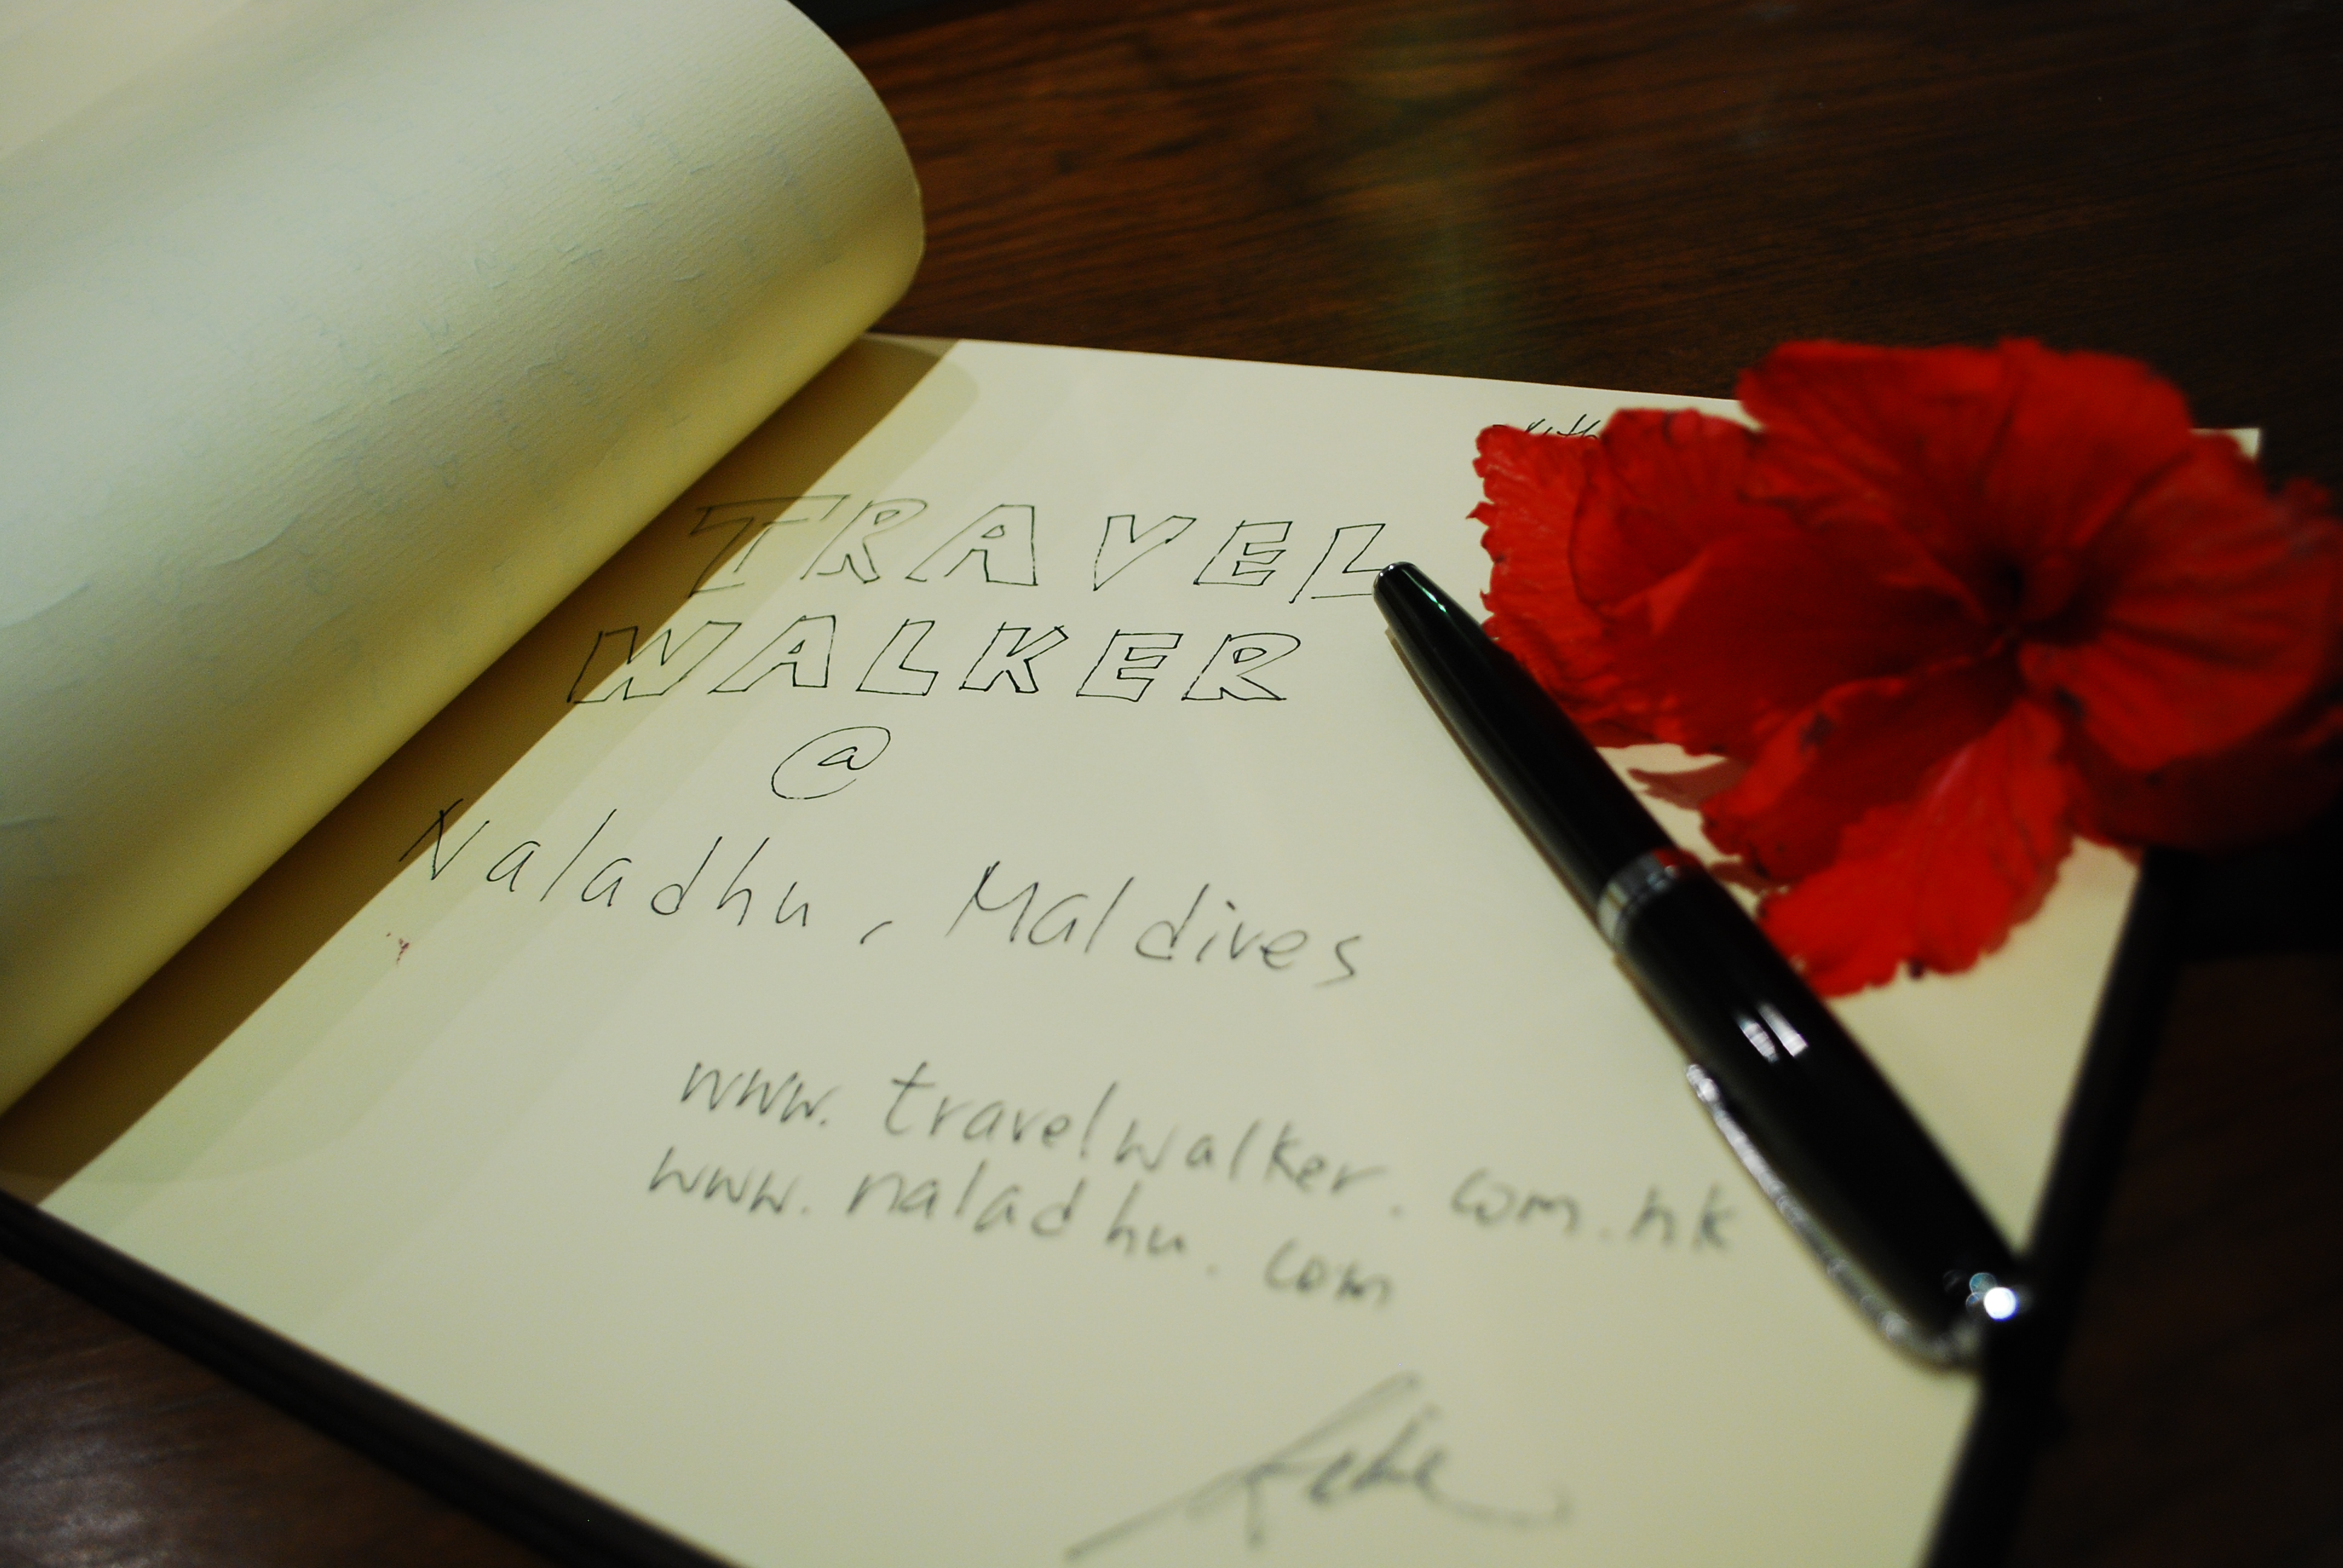 TRAVEL
WALKER
@
Naladhu, Maldives
www.travelwalker.com.hk
www.naladhu.com